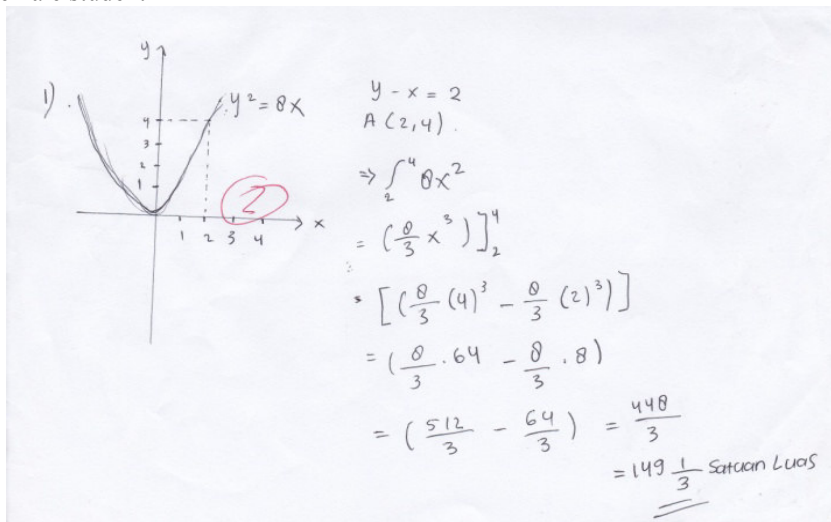 1).
y
y² = 8x
4
3
2
1
1 2 3 4
x
2
y - x = 2
A (2,4).
⇒ ∫₂⁴ 8x²
= (8/3 x³)]₂⁴
[(8/3 (4)³ - 8/3 (2)³)]
= (8/3 . 64 - 8/3 . 8)
= (512/3 - 64/3) = 448/3
= 149 1/3 Satuan Luas